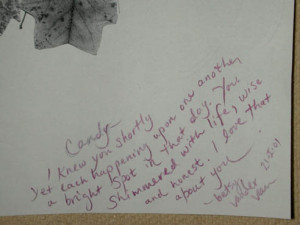 Candy
I knew you shortly
yet each happening upon one another
a bright spot in that day. You
shimmered with life, wise
and honest. I love that
about you
-betty